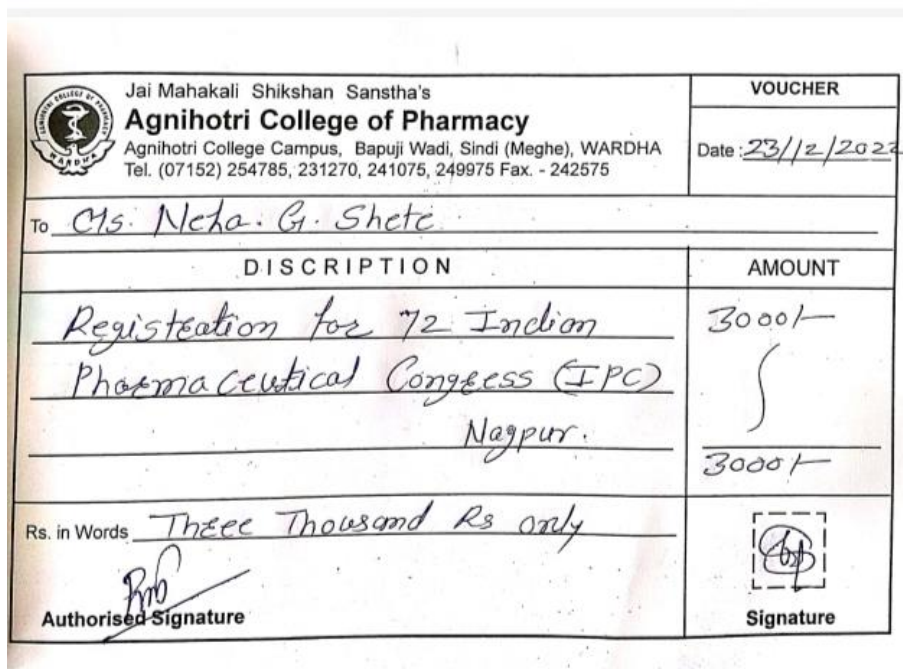 Jai Mahakali Shikshan Sanstha's
Agnihotri College of Pharmacy
Agnihotri College Campus, Bapuji Wadi, Sindi (Meghe), WARDHA
Tel. (07152) 254785, 231270, 241075, 249975 Fax. - 242575
VOUCHER
Date : 23/12/2022
To Ms. Neha. G. Shete
DISCRIPTION AMOUNT
Registration for 72 Indian 3000/-
Pharmaceutical Congress (IPC)
Nagpur.
3000/-
Rs. in Words Three Thousand Rs only
Authorised Signature
Signature